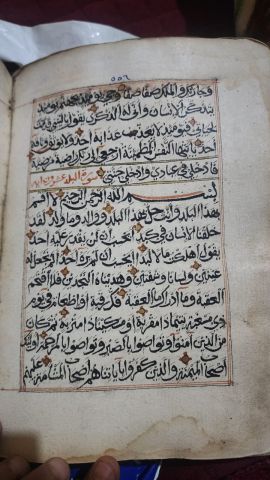 ٥٥٦
وجاء ربك والملك صفا صفا وجيء يومئذ بجهنم يومئذ
يتذكر الانسان وانى له الذكرى يقول يا ليتني قدمت
لحياتي فيومئذ لا يعذب عذابه احد ولا يوثق وثاقه
احد يا ايتها النفس المطمئنة ارجعي الى ربك راضية مرضية
فادخلي في عبادي وادخلي جنتي سورة البلد عشرون اية
بسم الله الرحمن الرحيم لا اقسم
بهذا البلد وانت حل بهذا البلد ووالد وما ولد لقد
خلقنا الانسان في كبد ايحسب ان لن يقدر عليه احد
يقول اهلكت مالا لبدا ايحسب ان لم يره احد الم نجعل له
عينين ولسانا وشفتين وهديناه النجدين فلا اقتحم
العقبة وما ادراك ما العقبة فك رقبة او اطعام في يوم
ذي مسغبة يتيما ذا مقربة او مسكينا ذا متربة ثم كان
من الذين امنوا وتواصوا بالصبر وتواصوا بالمرحمة اولئك
اصحاب الميمنة والذين كفروا باياتنا هم اصحاب المشامة عليهم